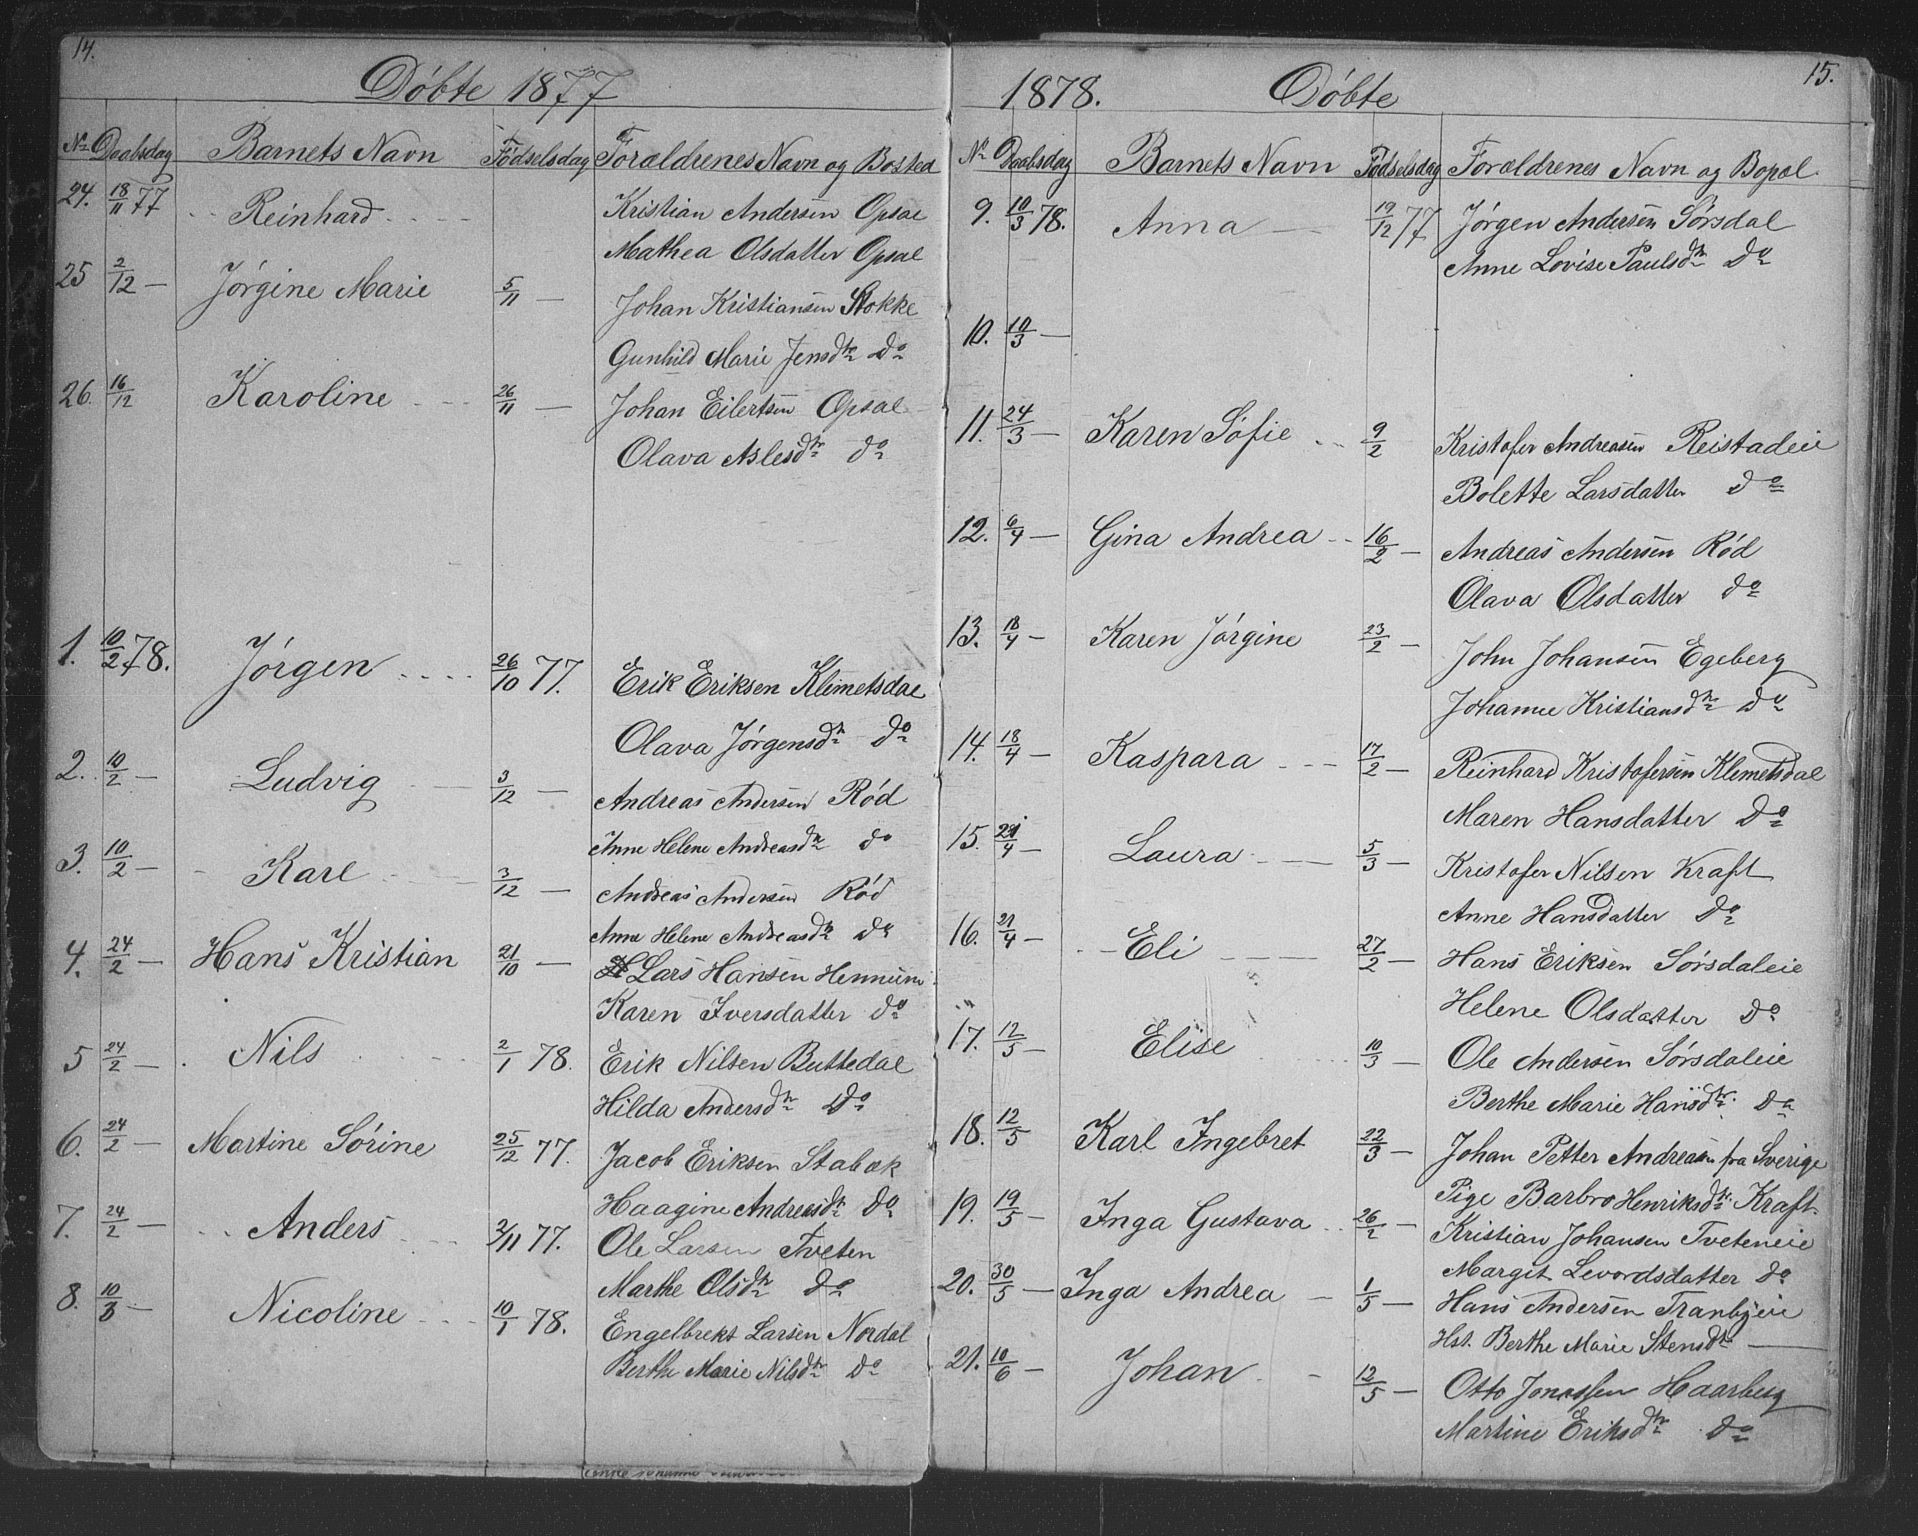 14.
Döbte 1877
Nr Daabsdag Barnets Navn Födselsdag Forældrenes Navn og Bosted
24. 18/11 77 Reinhard Kristian Andersen Opsal
Mathea Olsdatter Opsal
25 2/12 — Jörgine Marie 5/11 — Johan Kristiansen Stokke
Gunhild Marie Jensdtr Do
26. 16/12 Karoline 26/11 — Johan Eilertsen Opsal
Olava Aslesdtr do
1. 10/2 78. Jörgen 26/10 77. Erik Eriksen Klemetsdal
Olava Jörgensdtr Do
2. 10/2 — Ludvig 3/12 — Andreas Andersen Röd
Anne Helene Andreasdtr do
3. 10/2 — Karl 3/12 — Andreas Andersen Röd
Anne Helene Andreasdtr Do
4. 24/2 — Hans Kristian 21/10 — Lars Hansen Hennum
Karen Iversdatter Do
5 24/2 — Nils 2/1 78. Erik Nilsen Buttedal
Hilda Andersdtr Do
6. 24/2 — Martine Sörine 25/12 77. Jacob Eriksen Stabæk
Haagine Andreasdtr Do
7. 24/2 — Anders 2/11 77. Ole Larsen Tveten
Marthe Olsdtr Do
8. 10/3 — Nicoline 10/1 78. Engelbrekt Larsen Nordal
Berthe Marie Nilsdtr Do
15.
1878. Döbte
Nr Daabsdag Barnets Navn Födselsdag Forældrenes Navn og Bopæl
9. 10/3 78. Anna — 19/12 77 Jörgen Andersen Sörsdal
Anne Lovise Paulsdtr Do
10. 10/3 —
11. 24/3 — Karen Söfie 9/2 Kristofer Andreasen Reistadeie
Bolette Larsdatter do
12. 6/4 — Gina Andrea 16/2 — Andreas Andersen Röd
Olava Olsdatter do
13. 18/4 — Karen Jörgine 23/2 — John Johansen Egeberg
Johanne Kristiansdtr Do
14. 18/4 — Kaspara 17/2 — Reinhard Kristofersen Klemetsdal
Maren Hansdatter Do
15. 21/4 — Laura 5/3 — Kristofer Nilsen Kraft
Anne Hansdatter Do
16. 21/4 — Eli 27/2 — Hans Eriksen Sörsdaleie
Helene Olsdatter Do
17. 12/5 — Elise 10/3 — Ole Andersen Sörsdaleie
Berthe Marie Hansdtr. Do
18. 12/5 Karl Ingebret 22/3 — Johan Petter Andreasen fra Sverige
Pige Barbro Henriksdtr Kraft
19. 19/5 — Inga Gustava 26/2 — Kristian Johansen Tveteneie
Margit Levordsdatter do
20. 30/5 — Inga Andrea — 1/5 — Hans Andersen Tranbyeie
Hst. Berthe Marie Stensdtr —
21. 10/6 — Johan 12/5 — Otto Jonassen Haarberg
Martine Eriksdtr Do